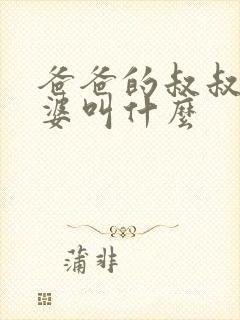 爸爸的叔叔
婆叫什麼
蒲非